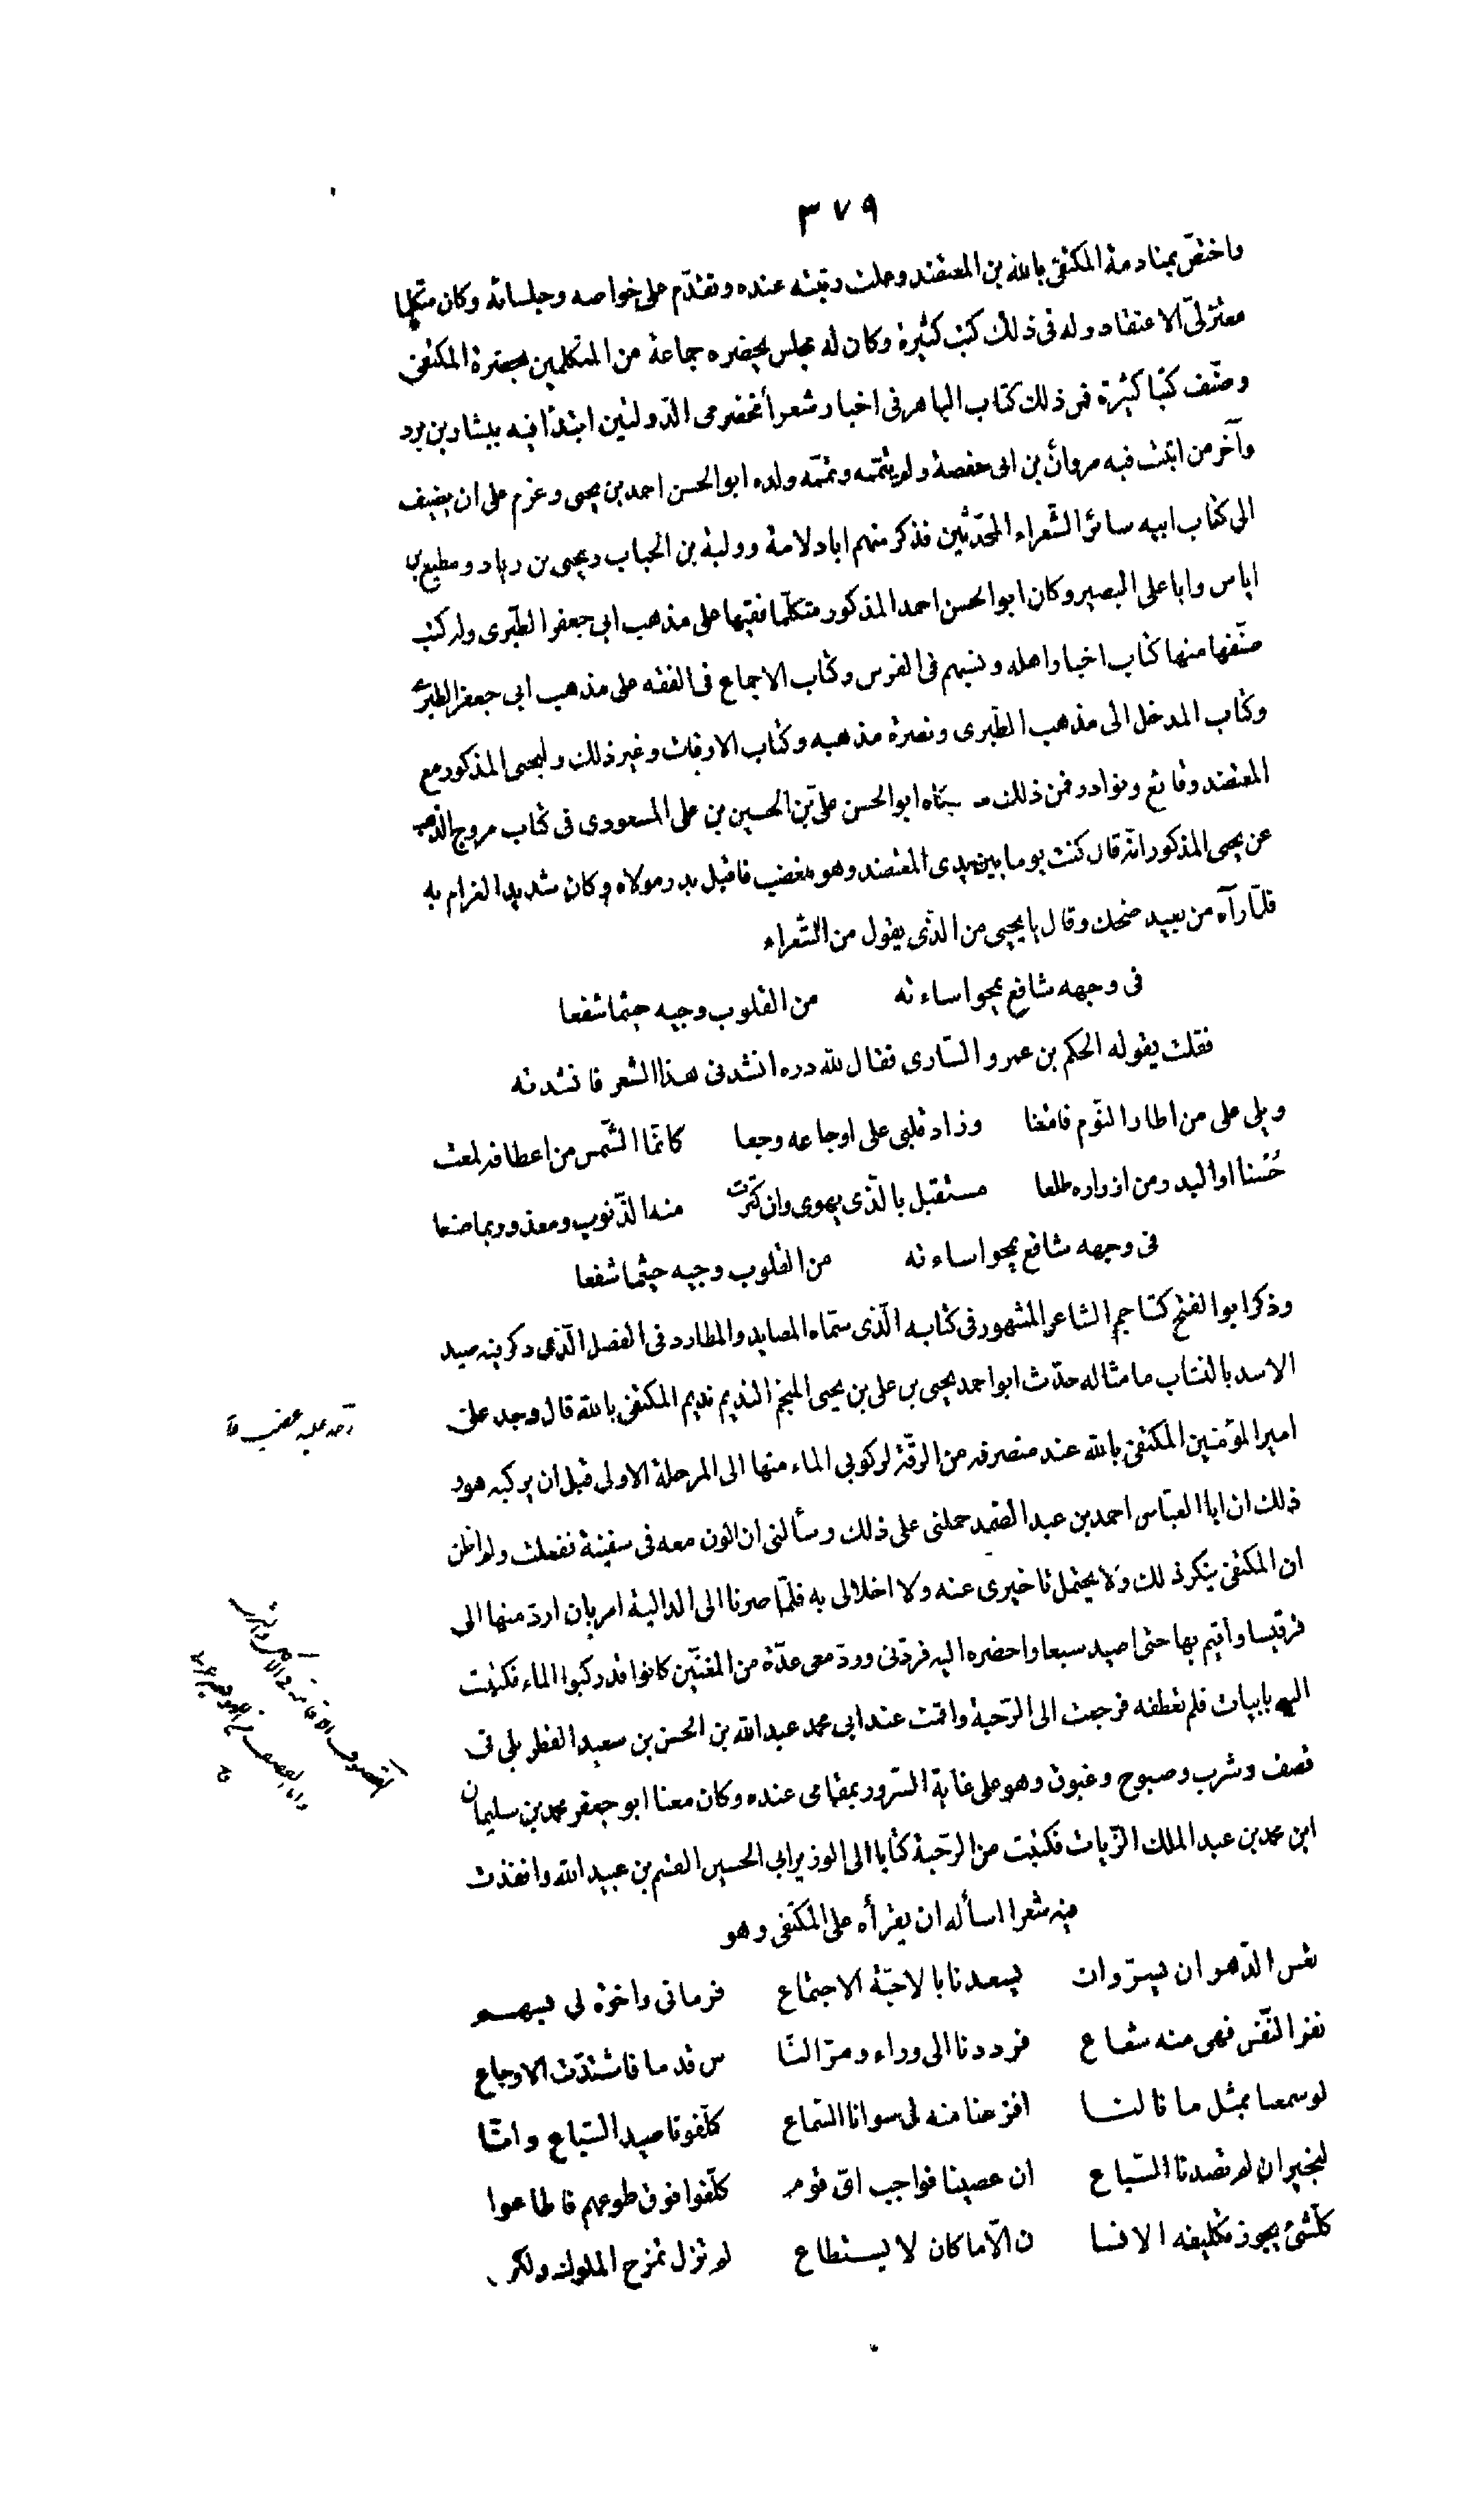 ٣٧٩
واختصّ بمنادمة المكتفى بالله بن المعتضد وعلت رتبته عنده وتقدّم على خواصه وجلسائه وكان متكلما
معتزلىّ الاعتقاد وله فى ذلك كتب كثيرة وكان له مجلس يحضره جماعة من المتكلمين بحضرة المكتفى
وصنّف كتبا كثيرة فمن ذلك كتاب الباهر فى اخبار شعرأ مخضرمى الدّولتين ابتدأ فيه ببشار بن برد
وآخر من اثبت فيه مروان بن ابى حفصة ولم يتمّمه وتمّمه ولده ابو الحسن احمد بن يحيى وعزم على ان يضيف
الى كتاب ابيه سائر الشّعراء المحدّثين فذكر منهم ابا دلامة ووالبة بن الحباب ويحيى بن زياد ومطيع بن
اياس وابا على البصير وكان ابو الحسن احمد المذكور متكلّما فقيها على مذهب ابى جعفر الطّبرى وله كتب
صنّفها منها كتاب اخبار اهله ونسبهم فى الفرس وكتاب الاجماع فى الفقه على مذهب ابى جعفر الطبرى
وكتاب المدخل الى مذهب الطّبرى ونصرة مذهبه وكتاب الاوقات وغير ذلك وليحيى المذكور مع
المعتضد وقائع ونوادر فمن ذلك ابو الحسن علىّ بن الحسين بن على المسعودى فى كتاب مروج الذهب
عن يحيى المذكور انّه قال كنت يوما بين يدى المعتضد وهو مغضب فاقبل بدر مولاه وكان شديد الغرام به
فلمّا رآه من بعيد ضحك وقال يا يحيى من الذّى يقول من الشّعراء
فى وجهه شافع يمحو اساءته من القلوب وجيه حيثما شفعا
فقلت يقوله الحكم بن عمرو السّارى فقال لله دره انشدنى هذا الشعر فانشدته
ويلى على من اطار النّوم فامتنعا وزاد قلبى على اوجاعه وجعا كانّما الشّمس من اعطافه لمعت
حُسنا او البدر من ازراره طلعا مستقبل بالّذى يهوى وان كثرت منه الذّنوب ومعذور بما صنعا
فى وجهه شافع يمحو اساءته من القلوب وجيه حيثما شفعا
وذكر ابو الفتح كشاجم الشاعر المشهور فى كتابه الّذى سمّاه المصايد والمطارد فى الفصل الّذى ذكر فيه صيد
الاسد بالنشّاب ما مثاله حدّث ابو احمد يحيى بن على بن يحيى المنجّم النديم نديم المكتفى بالله قال وجد علىّ
امير المؤمنين المكتفى بالله عند منصرفه من الرقّة لركوبى الماء منها الى المرحلة الاولى قبل ان يركبه هو و
ذلك ان ابا العبّاس احمد بن عبد الصّمد حملنى على ذلك وسألنى ان اكون معه فى سفينة ففعلت ولم اظن
ان المكتفى ينكر ذلك ولا يحتمل تأخيرى عنه ولا اخلالى به فلمّا صرنا الى الدالية امر بان اردّ منها الى
قرقيسا واقيم بها حتى اصيد سبعا واحضره اليه فردّنى وردّ معى عدّة من المغنّين كانوا قد ركبوا الماء فكتبت
اليه بابيات فلم تعطفه فرجعت الى الرّحبة واقمت عند ابى محمد عبد الله بن الحسن بن سعيد القطربلى فى
قصف وشرب وصبوح وغبوق وهو على غاية السّرور بمقامى عنده وكان معنا ابو جعفر محمد بن سليمان
ابن محمد بن عبد الملك الزّيات فكتبت من الرّحبة كتابا الى الوزير ابى الحسين القسم بن عبيد الله وانفذت
فيه شعرا اسأله ان يقرأه على المكتفى وهو
نفس الدّهر ان يسرّ وان يسعدنا بالاحبّة الاجتماع فرمانى واخوة لى بسهم
نفر النّفس فهى منه شعاع فرددنا الى وراء ومرّ النّا س قدما فاشتدّت الاوجاع
لو سمعنا بمثل ما نالنا افزعنا منه لى سوانا السّماع كلّفونا صيد السّباع وانّا
لبخير ان لم تصدنا السّباع ان عصينا فواجب اىّ قوم كلّفوا فوق طوعهم فاطاعوا
كلّ شئ يجوز تكليفه الانسا ن الّا ما كان لا يستطاع لم تزل تمزح الملوك ولكن